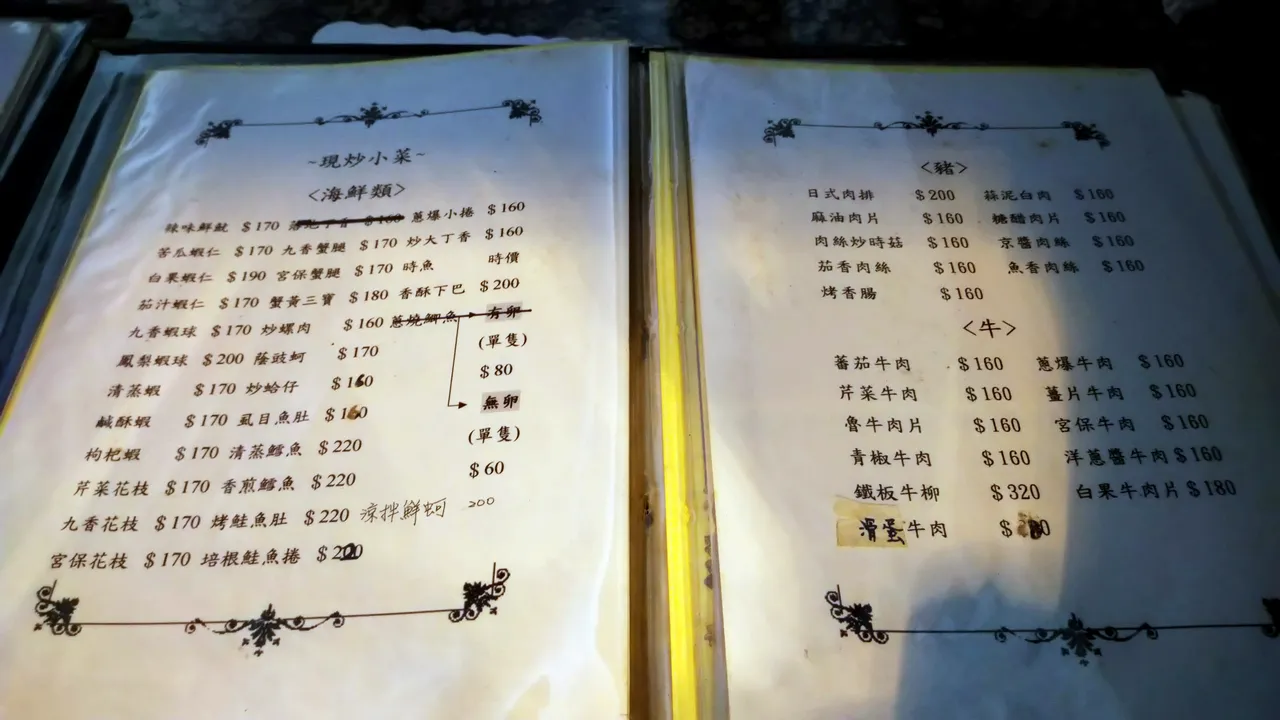 ~現炒小菜~
<海鮮類>
辣味鮮魷 $170 蔥爆小捲 $160
苦瓜蝦仁 $170 九香蟹腿 $170 炒大丁香 $160
白果蝦仁 $190 宮保蟹腿 $170 時魚 時價
茄汁蝦仁 $170 蟹黃三寶 $180 香酥下巴 $200
九香蝦球 $170 炒螺肉 $160 蔥燒鯽魚 有卵
鳳梨蝦球 $200 蔭豉蚵 $170 (單隻)
清蒸蝦 $170 炒蛤仔 $160 $80
鹹酥蝦 $170 虱目魚肚 $160 無卵
枸杞蝦 $170 清蒸鱈魚 $220 (單隻)
芹菜花枝 $170 香煎鱈魚 $220 $60
九香花枝 $170 烤鮭魚肚 $220 涼拌鮮蚵 200
宮保花枝 $170 培根鮭魚捲 $220
<豬>
日式肉排 $200 蒜泥白肉 $160
麻油肉片 $160 糖醋肉片 $160
肉絲炒時菇 $160 京醬肉絲 $160
茄香肉絲 $160 魚香肉絲 $160
烤香腸 $160
<牛>
蕃茄牛肉 $160 蔥爆牛肉 $160
芹菜牛肉 $160 薑片牛肉 $160
魯牛肉片 $160 宮保牛肉 $160
青椒牛肉 $160 洋蔥醬牛肉 $160
鐵板牛柳 $320 白果牛肉片 $180
滑蛋牛肉 $